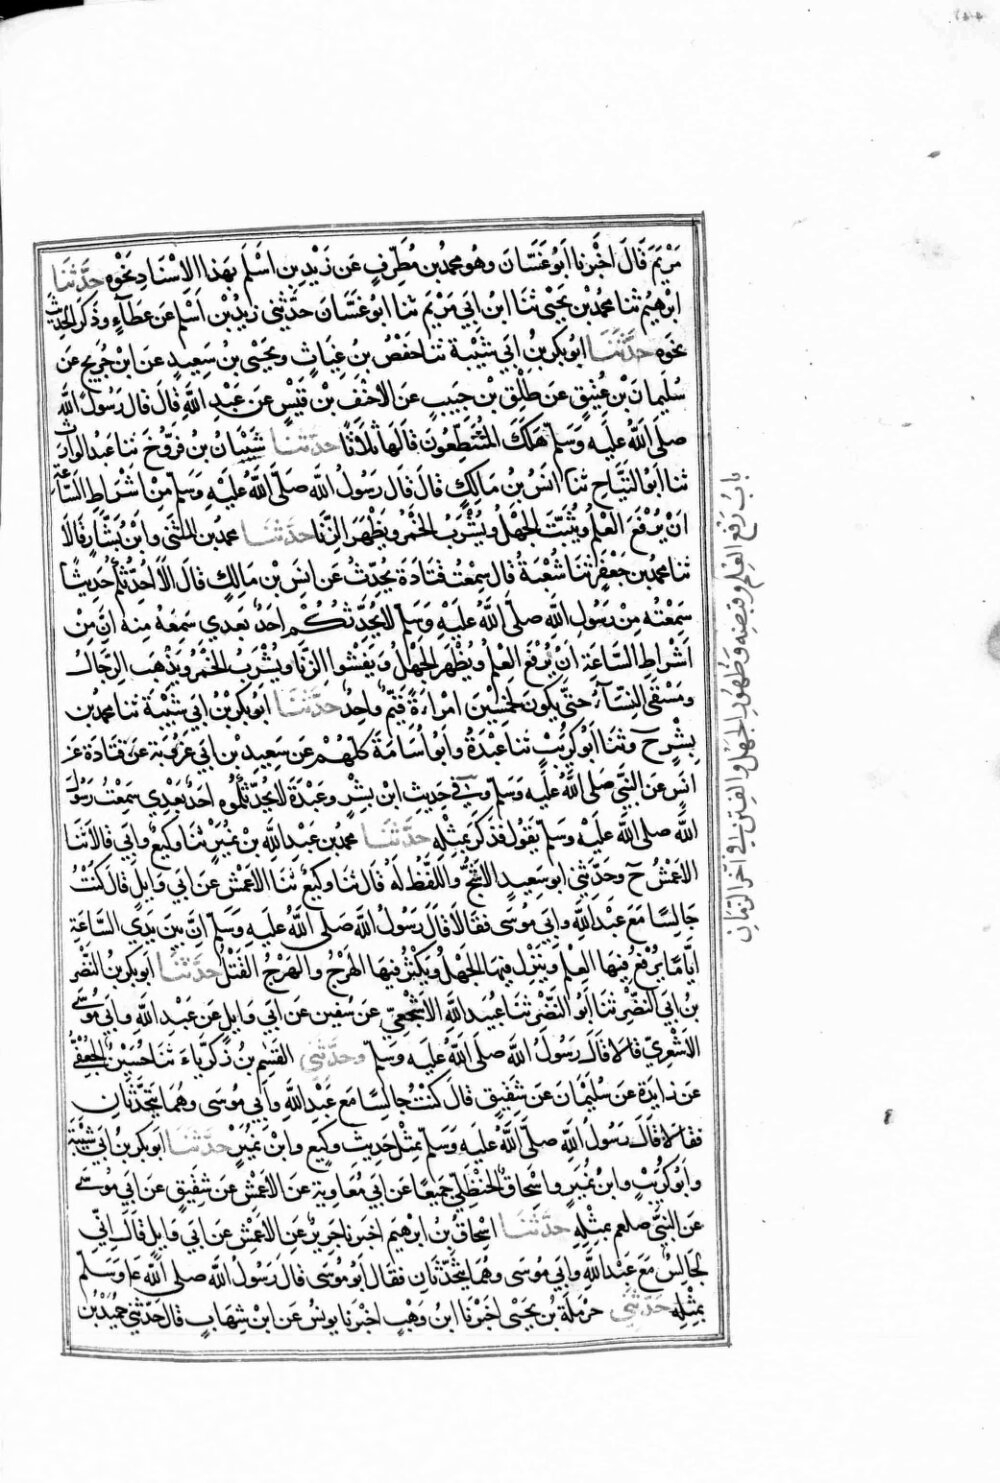 مَرْيَمَ قَالَ اَخْبَرَنا اَبُو غَسَّانَ وهُو محمد بن مُطَرِّفٍ عَن زَيْدِ بنِ اَسْلَمَ بهذا الاِسْنَادِ نَحْوَه حَدَّثَنَا
ابرهيم ثنا محمد بْن يَحْيَى ثَنَا ابْن اَبي مَرْيَم ثنا ابُو غَسَّانَ حَدَّثَنِي زَيْدُ بْن اَسْلَم عَن عَطَآءٍ وذَكَرَ الحديث
نحوَه حَدَّثَنَا ابو بكر بنُ ابي شَيْبَة ثنا حَفْصُ بن غِيَاثٍ ويَحْيَى بن سَعِيدٍ عَن ابْن جُرَيجٍ عَن
سُلَيمانَ بْن عَتِيْقٍ عَن طَلْقِ بْن حَبِيبٍ عَن الاَحْنَفِ بْن قَيْسٍ عَن عَبْدِ اللّٰه قَالَ قال رَسُولُ اللّٰه
صلى اللّٰه عليه وسلم هَلَكَ المُتَنَطِّعُونَ قَالَهَا ثَلاَثًا حَدَّثنا شَيْبَانُ بنُ فَرُّوخَ ثنا عَبدُ الوارث
ثنا اَبُو التَّيَّاحِ ثنا اَنَسُ بن مَالِكٍ قَالَ قَالَ رَسُولُ اللّٰه صَلَّى اللّٰه عليْهِ وَسَلم مِنْ اَشْرَاطِ السَّاعَة
اَنْ يُرْفَعَ العِلْمُ ويُثبَتَ الجهْلُ ويُشْرَبَ الخَمْرُ ويَظْهَرَ الزِّنَا حدَّثَنَا محمد بن المثنى وابْنُ بَشَّارٍ قَالاَ
ثنا محمد بن جَعْفَرٍ ثنا شُعْبَةُ قال سَمِعْتُ قَتَادَةَ يُحَدِّثُ عَن اَنَسِ بْن مَالِكٍ قَالَ اَلاَ اُحَدِّثُكُم حَدِيثًا
سَمِعْتُه مِنْ رَسُولِ اللّٰهِ صلى اللّٰه عليْهِ وَسَلم لايُحَدِّثكُمْ احَدٌ بَعدي سَمِعَهُ مِنهُ اِنَّ مِن
اَشْرَاطِ السَّاعَةِ اَنْ يُرْفَعَ العِلْمُ ويَظْهَرَ الجَهْلُ ويَفْشُوا الزِّنا ويُشْرَبَ الخَمْرُ ويَذْهَبَ الرِّجَالُ
وتَبْقَى النِّسَآءُ حَتَّى يَكونَ لخمْسِيْنَ امْرَاءةً قَيِّمٌ واحِدٌ حدَّثَنَا ابو بكر بْن ابي شَيْبَة ثنا محمد بن
بِشْرٍ ح وثَنا ابُو كُرَيْبٍ ثنا عَبْدَةُ وابُو اُسَامَةَ كلّهُمْ عَن سَعِيدِ بْنِ ابي عَرُوبَة عَن قَتَادَةَ عَن
انَسٍ عَن النَّبِي صلى اللّٰه عليه وسلم وفي حَدِيثِ ابْن بِشْرٍ وعَبْدَةَ لايُحَدِّثُكُمُوه احَدٌ بَعْدِي سَمِعْتُ رَسُولَ
اللّٰه صلى اللّٰه عليْهِ وَسَلم يَقُول فَذَكَرَ بمثْلِه حَدَّثَنا محمد بن عَبْدِ اللّٰه بْن نُمَيْرٍ ثنا وَكِيعٌ وابي قَالاَ ثنا
الاَعْمَشُ ح وحَدَّثني ابو سَعِيدٍ الاَشَجُّ واللَّفْظُ لَه قال ثنا وَكِيعٌ ثَنا الاَعْمَشُ عَن ابي وَايلٍ قَالَ كُنْتُ
جَالِسًا مَعَ عَبْدِ اللّٰه وابي مُوسَى فقَالاَ قَالَ رَسُولُ اللّٰه صَلى اللّٰه عليه وسلم اِنَّ بَين يَدَي السَّاعَةِ
ايَّامًا يُرْفَع فِيهَا العِلْمُ ويَنْزِل فيهَا الجَهْلُ ويَكْثُرُ فِيهَا الهَرْجُ والهَرْجُ القَتْلُ حَدَّثَنا ابو بكر بن النَّضْر
بن ابي النَّضْر ثَنا ابُو النَّضْر ثنا عُبَيد اللّٰهِ الاَشْجَعِيُّ عَن سُفين عَن ابي وَايلٍ عَن عَبْدِ اللّٰهِ وابي مُوسَى
الاَشْعَرِيّ قَالاَ قَالَ رَسُولُ اللّٰه صلى اللّٰهُ عليه وسلم وحَدَّثَنِي القَسِم بن زَكَرِيَّاءَ ثَنا حُسَيْن الجُعْفِيُّ
عَن زايدَةَ عَن سُلَيْمَانَ عَن شَقِيقٍ قَالَ كُنْتُ جَالِسًا مَعَ عَبْدِ اللّٰهِ وابي مُوسَى وهُمَا يَتَحَدَّثَانِ
فقَالاَ قَالَ رَسُولُ اللّٰهِ صلى اللّٰهُ عليه وَسَلم بمثْلِ حَدِيثِ وَكِيعٍ وابْن نُمَيْرٍ حَدَّثَنا ابو بكر بن ابي شَيْبَة
وابُو كُرَيْبٍ وابنُ نُمَيرٍ واسْحَاقُ الحَنْظَلِيّ جَمِيعًا عَن ابي مُعَاويَة عَن الاَعْمَش عَن شَقِيقٍ عَن ابي مُوسَى
عَن النَّبي صلعم بمثْلِه حَدَّثَنَا اِسْحَاقُ بن ابرهيم اخبَرنا جَرِيرٌ عَن الاَعْمَش عَن ابي وَايلٍ قَالَ اِنِّي
لجالِسٌ مَعَ عَبْدِ اللّٰهِ وابي مُوسَى وهُمَا يَتَحَدَّثَانِ فقَالَ ابُو مُوسَى قَالَ رَسُولُ اللّٰه صلى اللّٰه علَيه وَسَلم
بمثِلِه حَدَّثَنِي حَرْمَلَة بن يَحْيَى اخبَرَنا ابْن وَهْبٍ اخْبَرَنا يونُس عَن ابْن شِهَابٍ قَال حَدَّثَنِي حُمَيْدُ بْنُ
بابُ رَفْعِ العِلْمِ وقبْضِه وظُهُورِ الجَهْلِ والفِتَنِ في آخر الزَّمَانِ